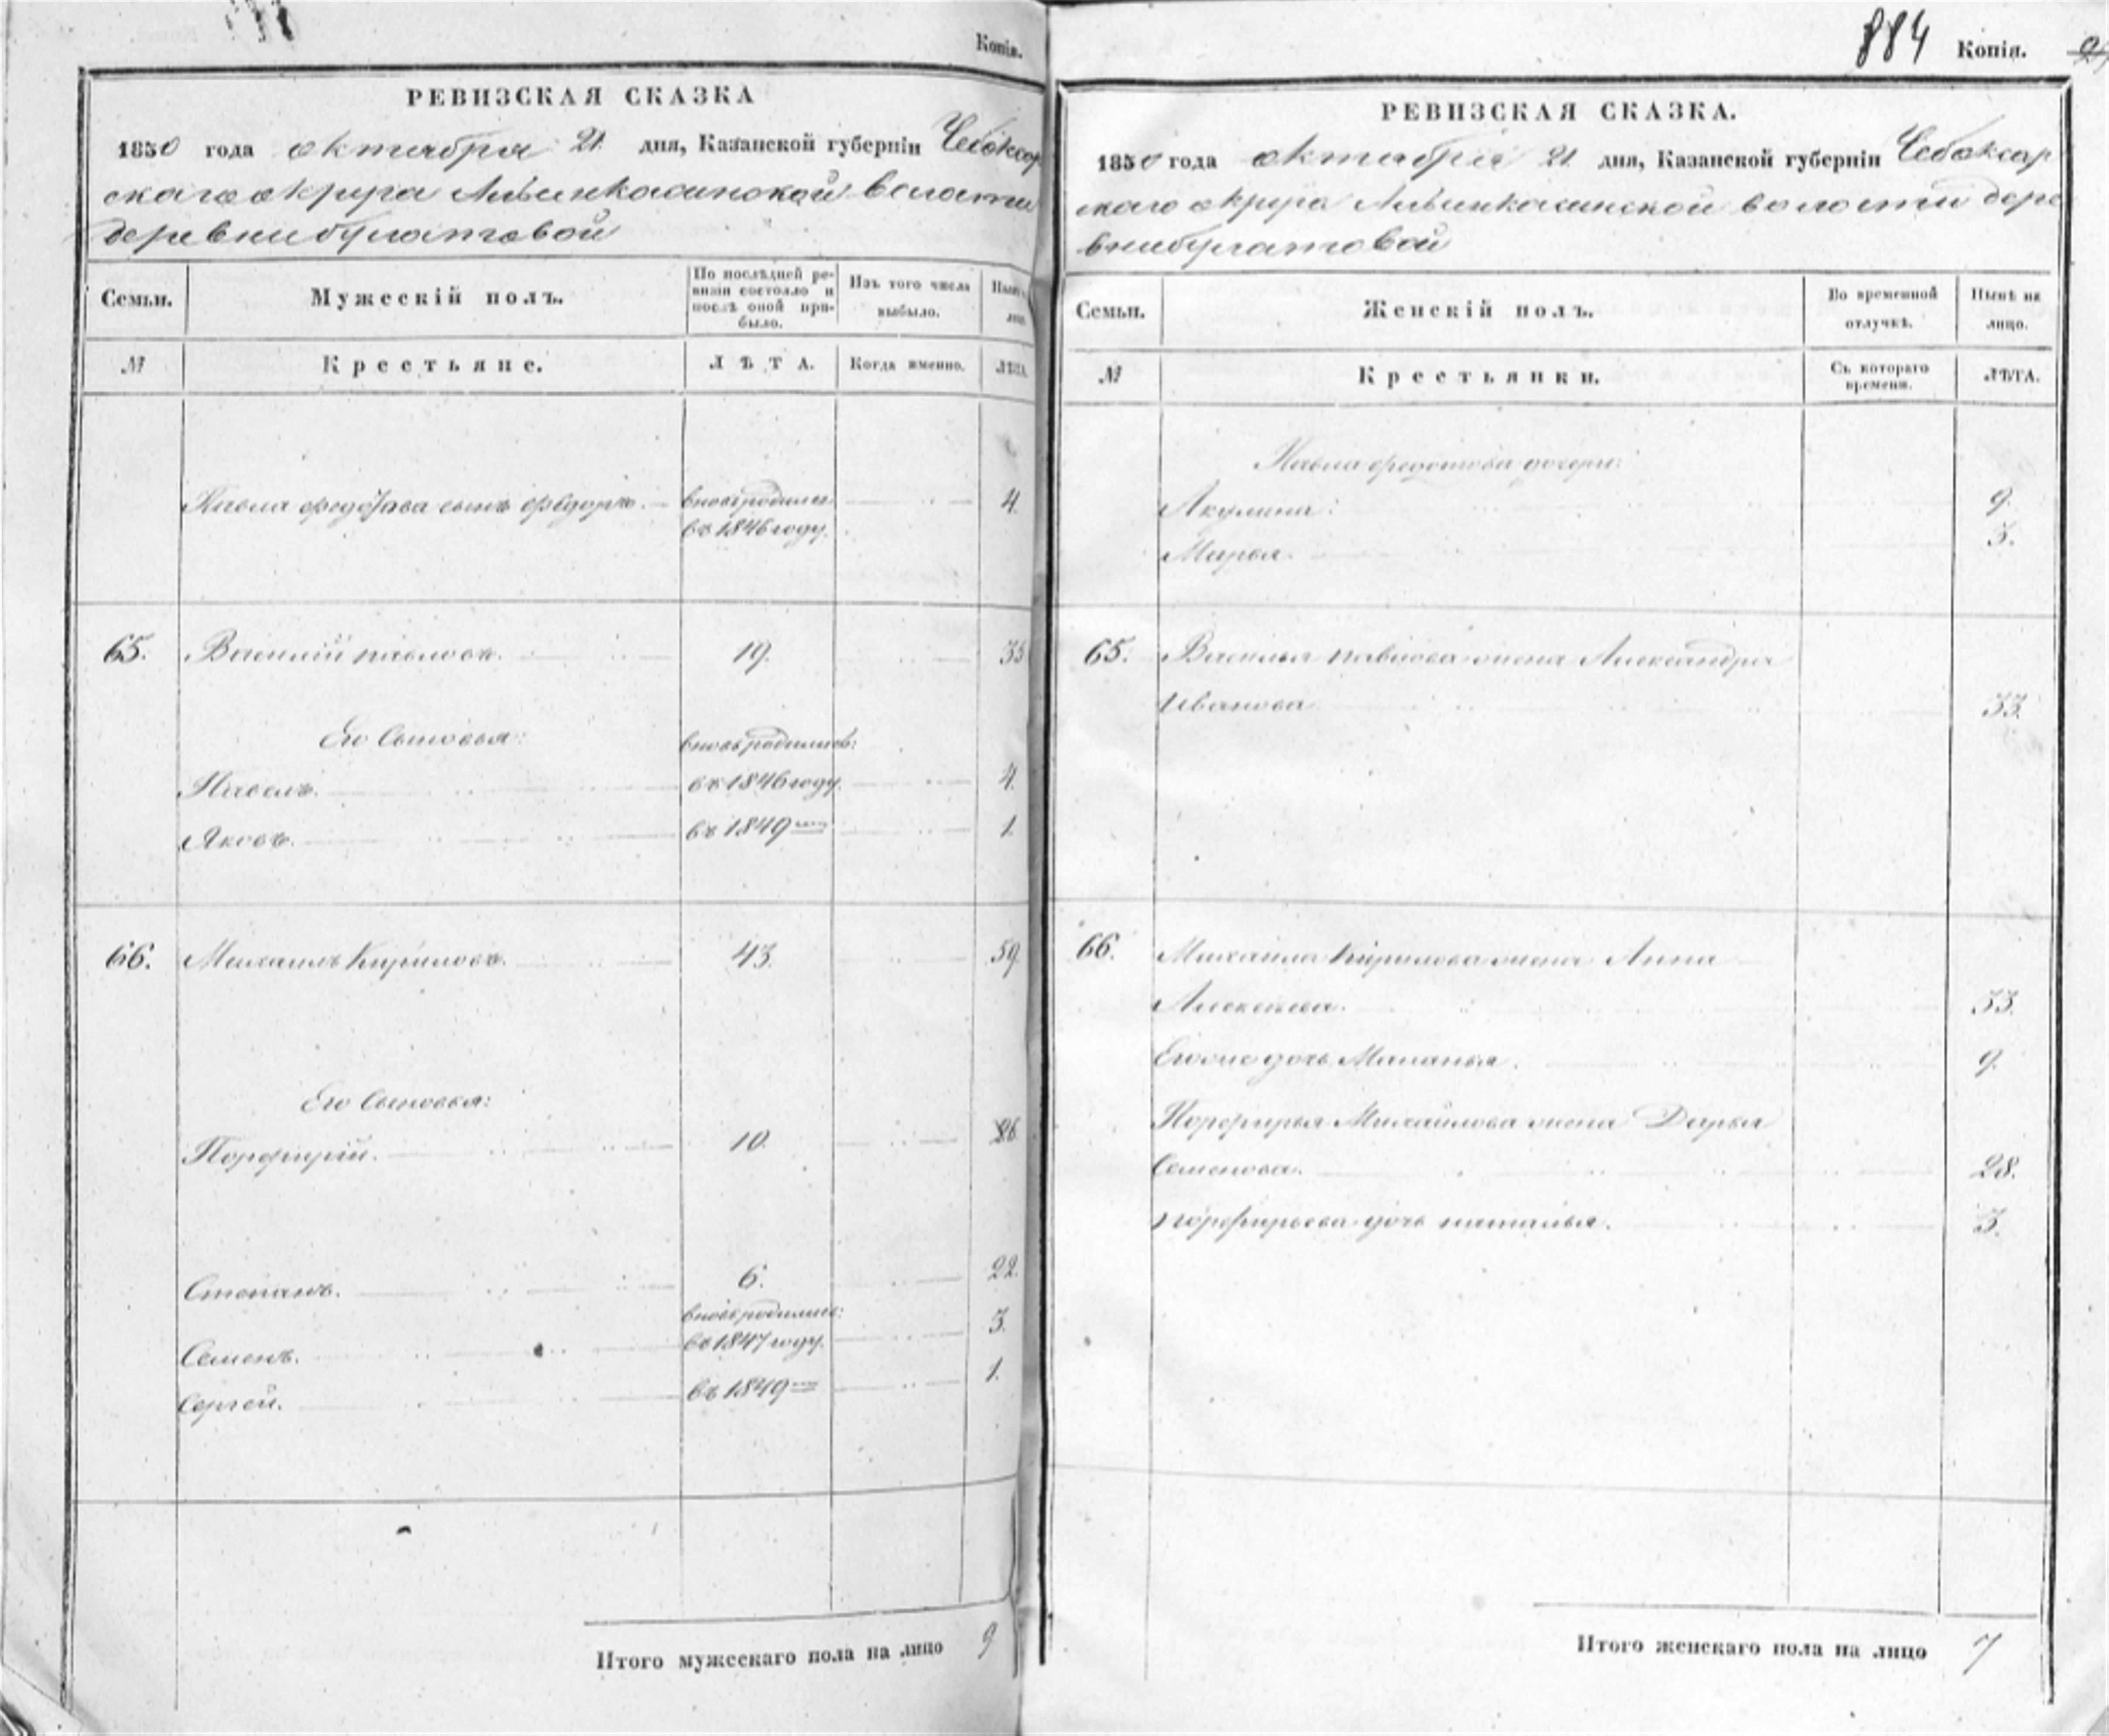 Копія.
РЕВИЗСКАЯ СКАЗКА
1850 года октября 21 дня, Казанской губерніи Чебоксар
скаго округа волости
деревни булатовой
Семьи.
Мужескій полъ.
По послѣдней ре-
визіи состояло и
послѣ оной при-
было.
Изъ того числа
выбыло.
№
Крестьяне.
ЛѢТА.
Когда именно.
ЛѢТА.
Павла федотова сынъ федоръ.
вновь родился
въ 1846 году.
4.
65.
Василій павловъ.
19.
35
Его Сыновья:
вновь родились:
Павелъ.
въ 1846 году.
4.
Яковъ.
въ 1849
1.
66.
Михаилъ Кириловъ.
43.
59.
Его Сыновья:
Порфирій.
10.
26
Степанъ.
6.
22.
вновь родились:
Семенъ.
въ 1847 году.
3.
Сергей.
въ 1849
1.
Итого мужескаго пола на лицо 9
884 Копія.
РЕВИЗСКАЯ СКАЗКА.
1850 года октября 21 дня, Казанской губерніи Чебоксар
скаго округа волости дере
вни булатовой
Семьи.
Женскій полъ.
Во временной
отлучкѣ.
Нынѣ на
лицо.
№
Крестьянки.
Съ котораго
времени.
ЛѢТА.
Павла федотова дочери:
Акулина:
9.
Марья.
3.
65.
Василья павлова жена Александра
Иванова
33.
66.
Михаила Кирилова жена Анна
Алексеева.
33.
Его же дочь Маланья.
9.
Порфирья Михайлова жена Дарья
Семенова.
28.
порфирьева дочь наталья.
3.
Итого женскаго пола на лицо 7